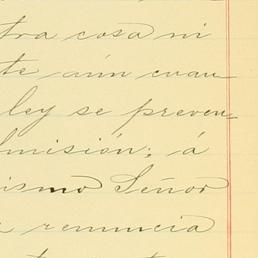 tra cosa ni
te aún cuan
ley se preven-
misión; á
ismo Señor
renuncia